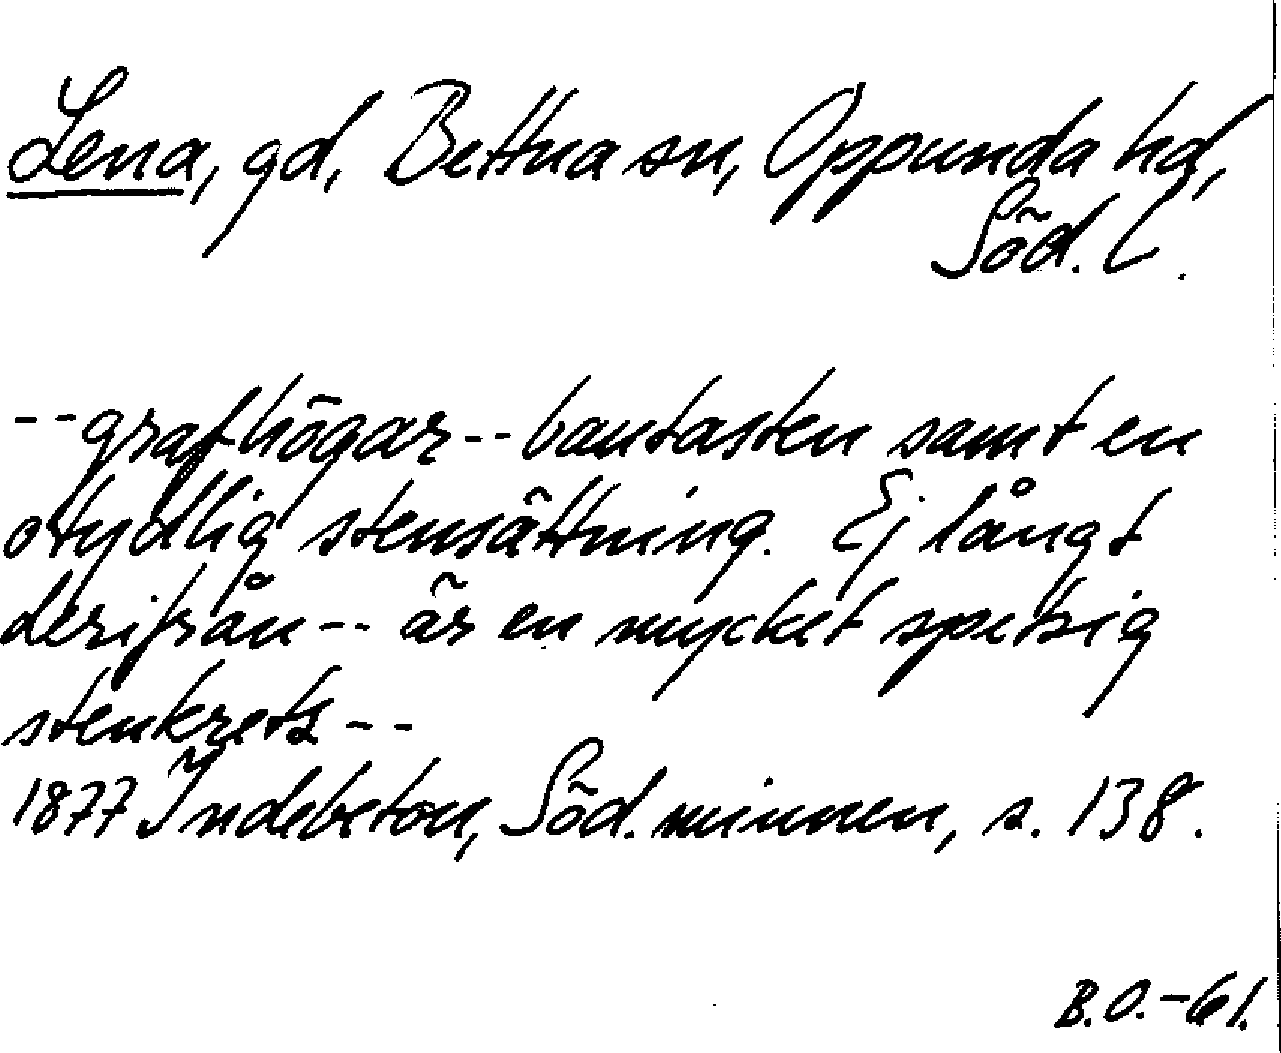 Lena, gd, Bettna sn, Oppunda hd,
Söd. l.
-- grafhögar -- bautasten samt en
otydlig stensättning. Ej långt
derifrån -- är en mycket spetsig
stenkrets --
1877 Indebetou, Söd. minnen, s. 138.
B.O.-61.